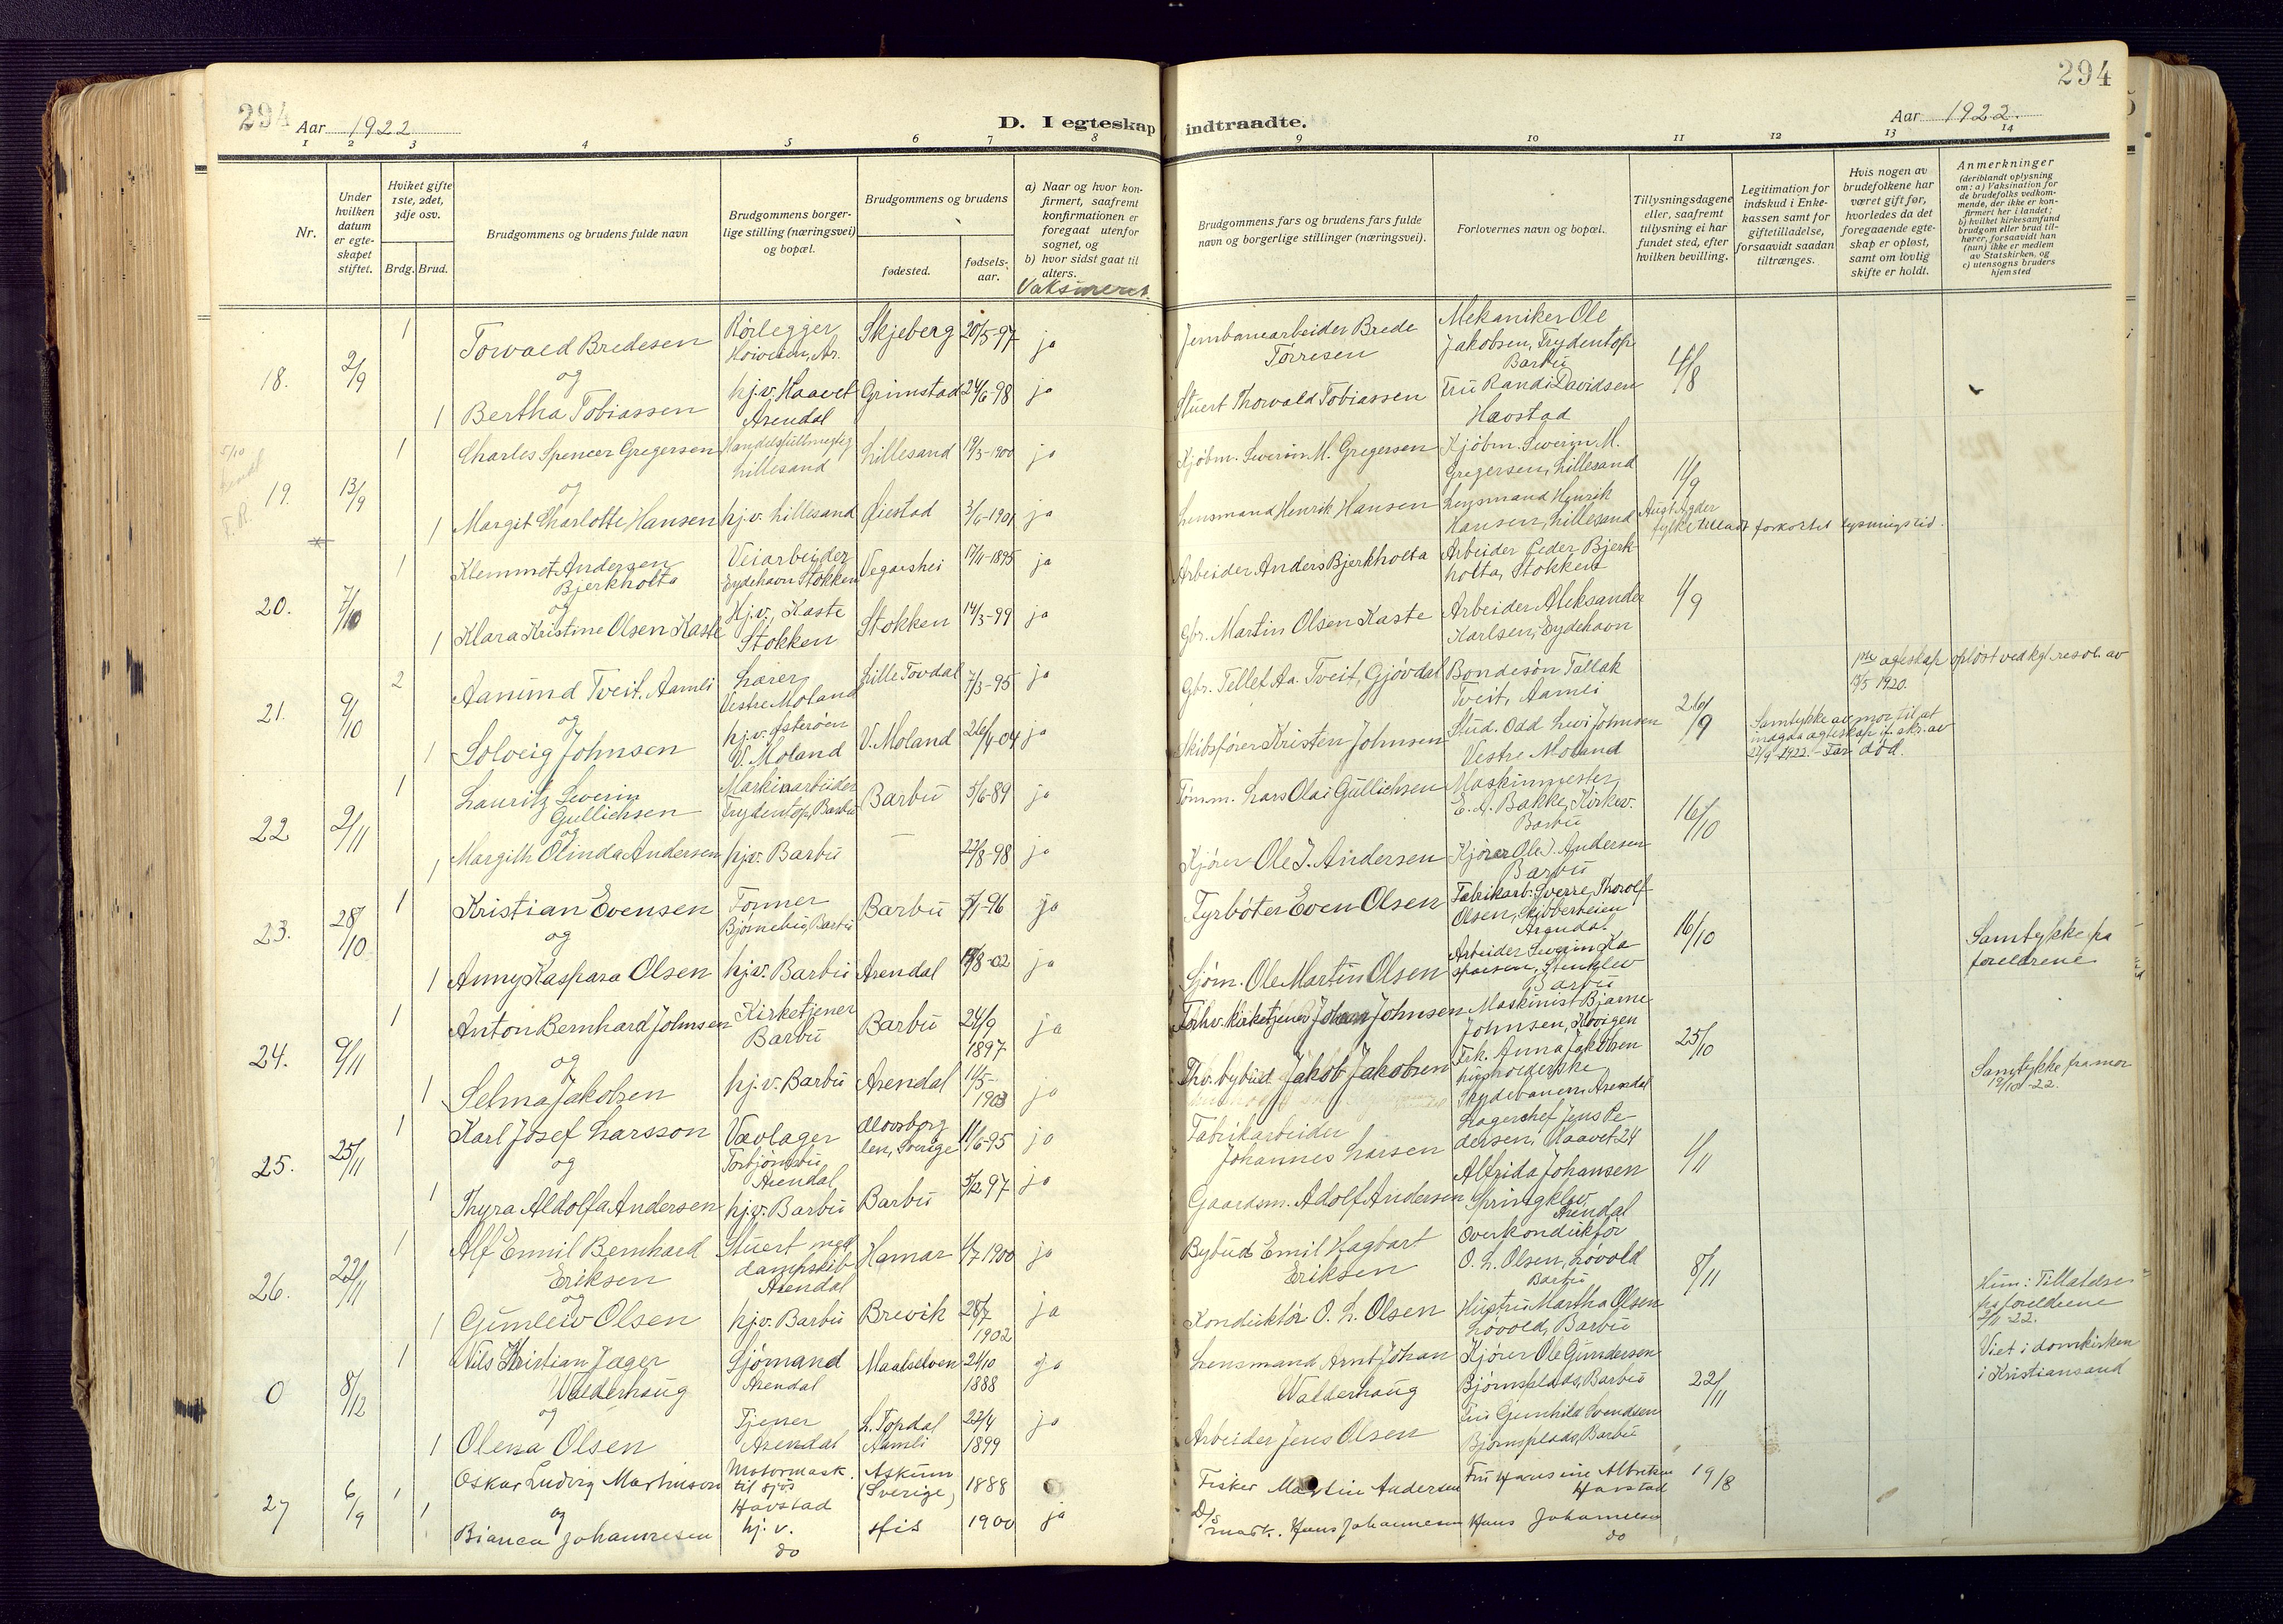 294
Aar 1922
D. I egteskap
1 2 3 4 5 6 7 8
Nr.
Under hvilken datum er egteskapet stiftet.
Hviket gifte 1ste, 2det, 3dje osv.
Brdg. Brud.
Brudgommens og brudens fulde navn
Brudgommens borgerlige stilling (næringsvei) og bopæl.
Brudgommens og brudens
fødested.
fødselsaar.
a) Naar og hvor konfirmert, saafremt konfirmationen er foregaat utenfor sognet, og
b) hvor sidst gaat til alters.
Vaksineret
18. 2/9
1 Torvald Bredesen Rørlegger Skjeberg 20/5-97 ja
og
1 Bertha Tobiassen hj.v. Haavet Arendal Grimstad 24/6-98 ja
5/10
19. 13/9
1 Charles Spencer Gregersen Handelsfuldmegtig Lillesand Lillesand 19/3-1900 ja
og
1 Margit Charlotte Hansen hj.v. Lillesand Øiestad 3/6-1901 ja
20. 7/10
1 Klemmet Andersen Bjerkholta Veiarbeider Eydehavn Stokken Vegarshei 17/11-1895 ja
og
1 Klara Kristine Olsen Kaste Hj.v., Kaste Stokken Stokken 14/3-99 ja
21. 9/10
2 Aanund Tveit, Aamli Lærer Vestre Moland Lille Tovdal 7/3-95 ja
og
1 Solveig Johnsen hj.v. Østerøen V. Moland V. Moland 26/4-04 ja
22 2/11
1 Lauritz Severin Gullichsen Maskinarbeider Frydentop, Barbu Barbu 5/6-89 ja
og
1 Margith Olinda Andersen hj.v. Barbu — 22/8-98 ja
23. 28/10
1 Kristian Evensen Former Bjørnebu, Barbu Barbu 5/1-96 ja
og
1 Anny Kaspara Olsen hj.v. Barbu Arendal /8-02 ja
24. 9/11
1 Anton Bernhard Johnsen Kirketjener Barbu Barbu 24/9 1897 ja
og
1 Selma Jakobsen hj.v. Barbu Arendal 11/5-1903 ja
25. 25/11
1 Karl Josef Larsson Vævlager Torbjørnsbu Arendal Alvsborg len, Sverige 11/6-95 ja
og
1 Thyra Aldolfa Andersen hj.v. Barbu Barbu 5/2 97 ja
26. 22/11
1 Alf Emil Bernhard Eriksen Stuert med dampskib Arendal Hamar 4/7 1900 ja
og
1 Gunleiv Olsen hj.v. Barbu Brevik 28/7 1902 ja
0 8/12
1 Nils Kristian Jæger Walderhaug Sjømand Arendal Maalselven 24/10 1888 ja
og
1 Olena Olsen Tjener Arendal L. Topdal Aamli 22/4 1899 ja
27 6/9
1 Oskar Ludvig Martinson Motormask. til sjøs Havstad Askum (Sverige) 1888
og
1 Bianca Johannesen hj.v. do His 1900 ja
294
Aar 1922.
indtraadte.
9 10 11 12 13 14
Brudgommens fars og brudens fars fulde navn og borgerlige stillinger (næringsvei).
Forlovernes navn og bopæl.
Tillysningsdagene eller, saafremt tillysning ei har fundet sted, efter hvilken bevilling.
Legitimation for indskud i Enkekassen samt for giftetilladelse, forsaavidt saadan tiltrænges.
Hvis nogen av brudefolkene har været gift før, hvorledes da det foregaaende egteskap er opløst, samt om lovlig skifte er holdt.
Anmerkninger
(deriblandt oplysning om: a) Vaksination for de brudefolks vedkommende, der ikke er konfirmert her i landet; b) hvilket kirkesamfund brudgom eller brud tilhører, forsaavidt han (hun) ikke er medlem av Statskirken, og c) utensogns bruders hjemsted
Jernbanearbeider Brede Torresen Mekaniker Ole Jakobsen, Frydentop Barbu
Stuert Thorvald Tobiassen Fru Randi Davidsen Havstad
Kjøbm. Severin M. Gregersen Kjøbm. Severin M. Gregersen, Lillesand 11/9
Lensmand Henrik Hansen Lensmand Henrik Hansen, Lillesand Aust Agder fylke tillatt forkortet lysningstid.
Arbeider Anders Bjerkholta Arbeider Peder Bjerkholta, Stokken
Gbr. Martin Olsen Kaste Arbeider Aleksander Karlsen, Eydehavn 1/9
Gbr. Tellef Aa. Tveit, Gjøvdal Bondesøn Tallak Tveit, Aamli 26/9 1ste egteskap opløst ved kgl. resol. av 13/5 1920.
Skibsfører Kristen Johnsen Stud. Odd Levi Johnsen Vestre Moland Samtykke av mor til at indgaa egteskap if. skr. av 27/9-1922. Far død.
Tømm. Lars Olai Gullichsen Maskinmester E. A. Bakke, Kirkev. Barbu 16/10
Kjører Ole J. Andersen Kjører Ole J. Andersen Barbu
Fyrbøter Even Olsen Fabrikarb. Sverre Thorolf Olsen, Skibberheien Arendal 16/10
Sjøm. Ole Martin Olsen Arbeider Severin Kaspersen, Stenklev Barbu Samtykke fra foreldrene
Forhv. kirketjener Johan Johnsen Maskinist Bjarne Johnsen, Kovigen 25/10
Fhv. bybud Jakob Jakobsen Frk. Anna Jakobsen husholderske Skydebanen, Arendal Samtykke fra mor 19/10-22.
Fabrikarbeider Johannes Larsen Lagerchef Jens Pedersen, Haavet 24
Gaardsm. Adolf Andersen Alfrida Johansen Springklev Arendal
Bybud Emil Hagbart Eriksen Overkonduktør O. L. Olsen, Løvold Barbu 8/11
Konduktør O. L. Olsen Hustru Martha Olsen Løvold, Barbu Hun: Tillatelse fra foreldrene 2/11-22.
Lensmand Arnt Johan Walderhaug Kjører Ole Gundersen Bjørnsplads, Barbu 22/11 Viet i domkirken i Kristiansand
Arbeider Jens Olsen Fru Gunhild Svendsen Bjørnsplads, Barbu
Fisker Martin Andersen Fru Hansine Albretsen Havstad 19/8
D/s mask. Hans Johannesen Hans Johannesen do